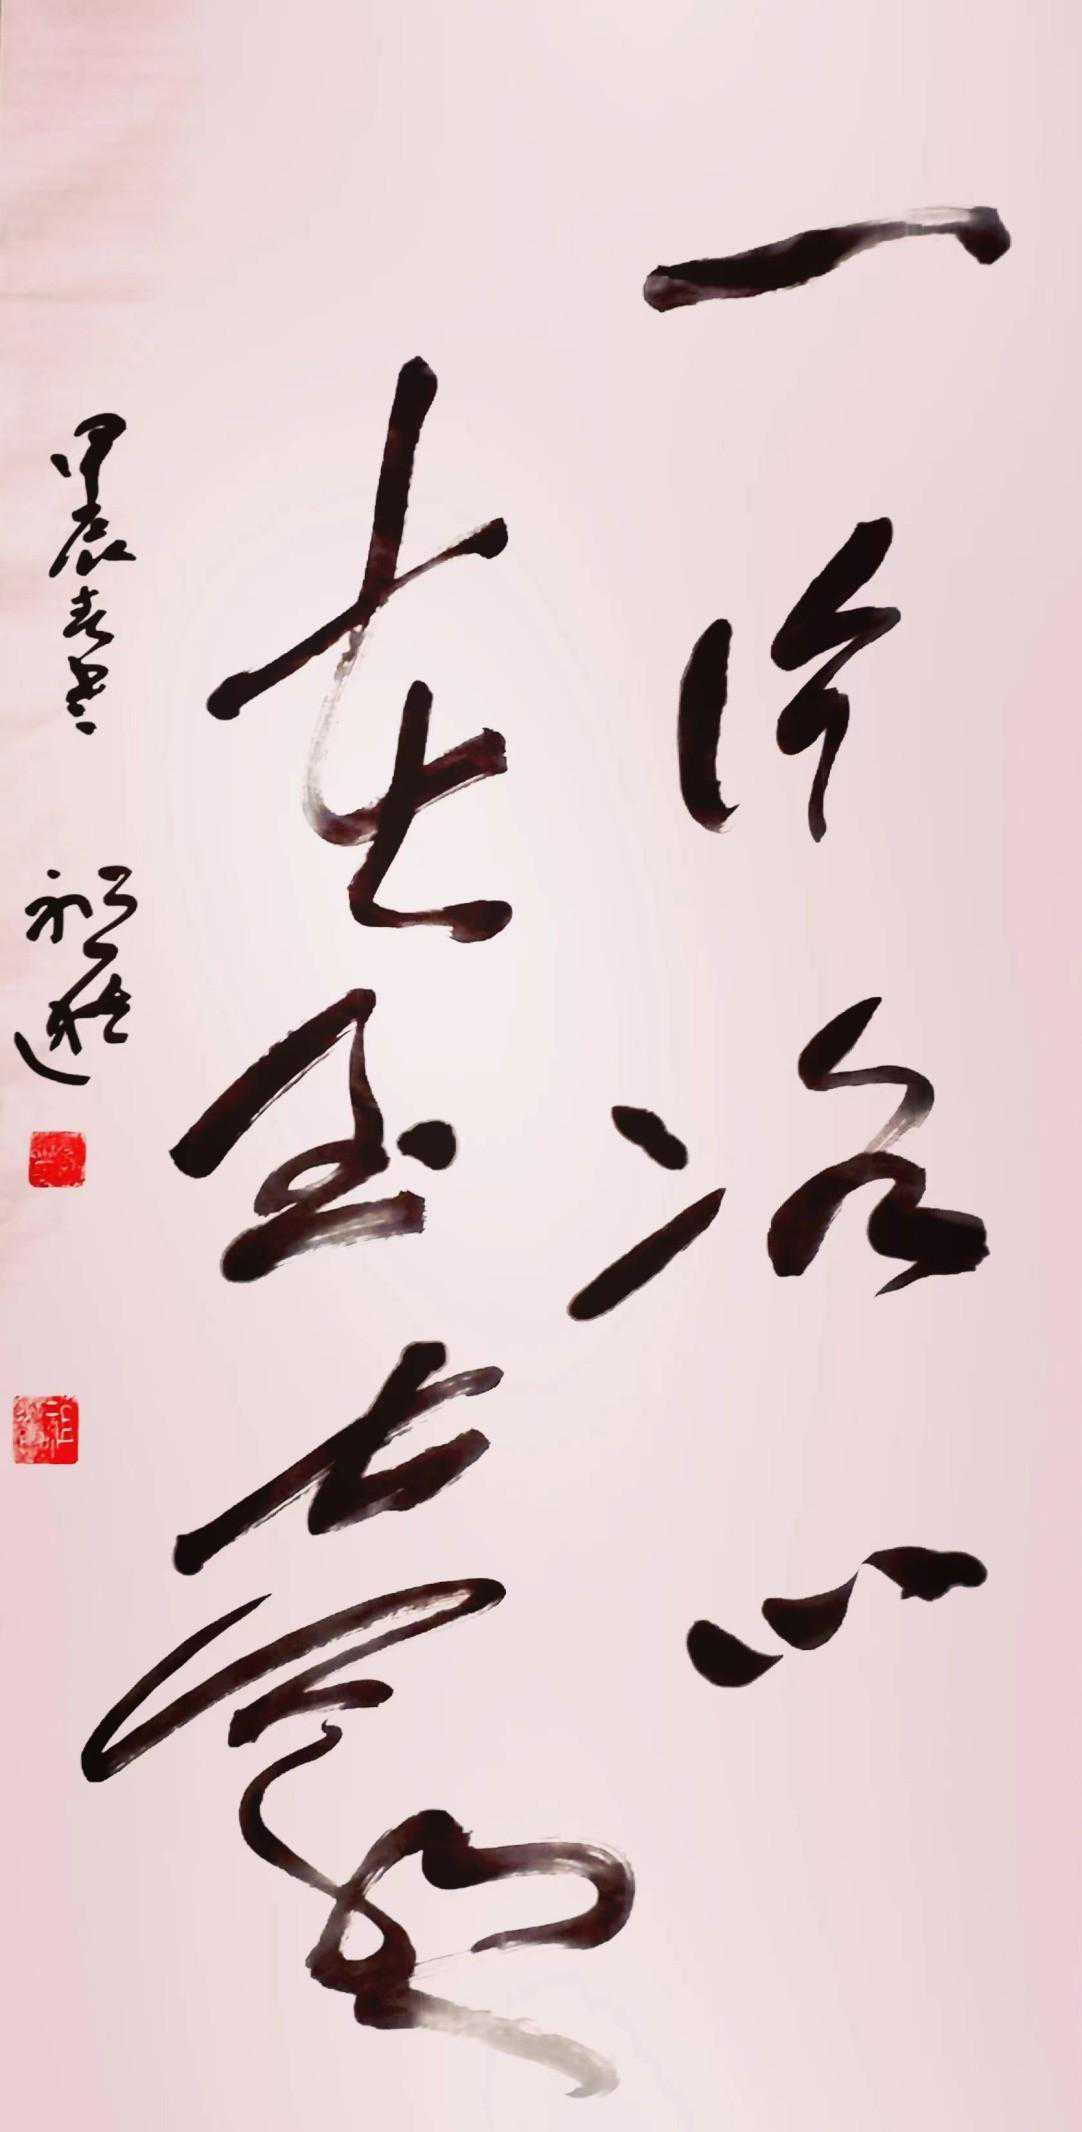 一片冰心
在玉壶
甲辰春书